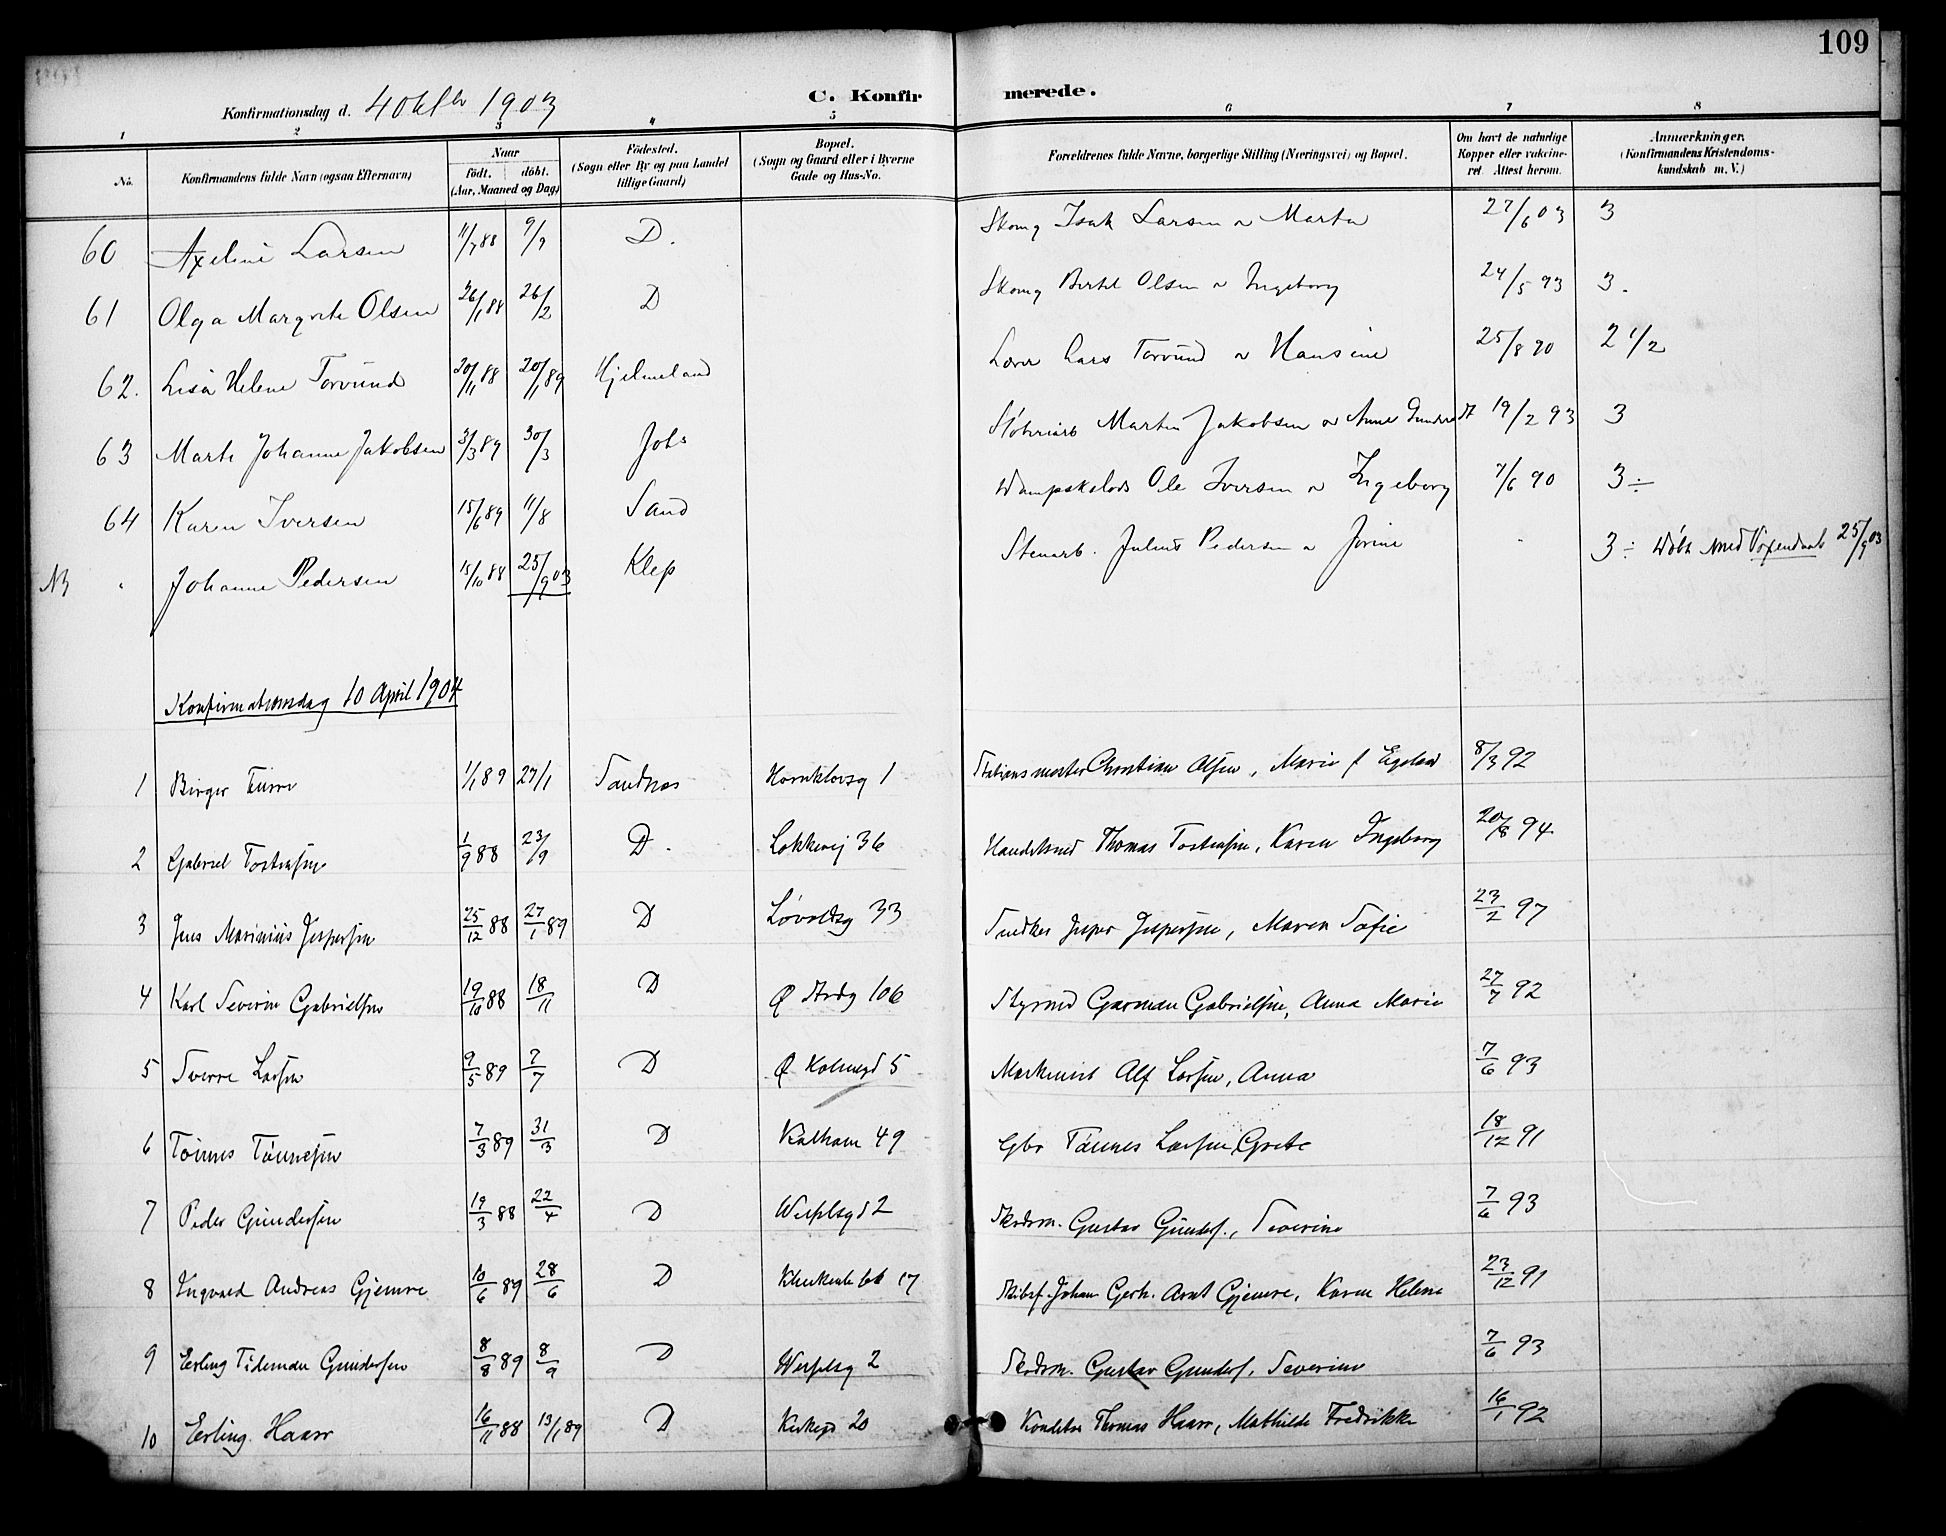 109
Konfirmationsdag d. 4 Oktbr 1903 C. Konfirmerede.
1 2 3 4 5 6 7 8
No. Konfirmandens fulde Navn (ogsaa Efternavn) Naar født. døbt. (Aar, Maaned og Dag) Fødested. (Sogn eller By og paa Landet tillige Gaard) Bopæl. (Sogn og Gaard eller i Byerne Gade og Hus-No. Forældrenes fulde Navne, borgerlige Stilling (Næringsvei) og Bopæl. Om havt de naturlige Kopper eller vaccineret. Attest herom. Anmærkninger. (Konfirmandens Kristendomskundskab m. V.)
60 Axeline Larsen 11/7 88 9/9 D. Skomg Isak Larsen o Marta 27/6 03 3
61 Olga Margrete Olsen 26/1 88 26/2 D Skomg Bertel Olsen o Ingeborg 24/5 93 3.
62. Lisa Helene Torvund 20/11 88 20/1 89 Hjelmeland Lærer Lars Torvund o Hansine 25/8 90 2 1/2
63 Marte Johanne Jakobsen 3/3 89 30/3 Joh Martin Jakobsen o Anne 19/2 93 3
64 Karen Iversen 15/6 89 11/8 Sand Ole Iversen o Ingeborg 7/6 90 3 ÷
NB Johanne Pedersen 15/10 88 25/9 03 Klep Stenarb. Julius Pedersen o Jorine 3 ÷ Døbt med Voxendaab 25/9 03
Konfirmationsdag 10 April 1904
1 Birger 1/1 89 27/1 Sandnæs Hornklovsg 1 Stationsmester Christian Olsen, Marie f Egeland 8/3 92
2 Gabriel Tostensen 1/9 88 23/9 D. Løkkevej 36 Handelsmd Thomas Tostensen, Karen Ingeborg 20/8 94
3 Jens Marinius Jespersen 25/12 88 27/1 89 D Løvoldsg 33 Snedker Jesper Jespersen, Maren Sofie 23/2 97
4 Karl Severin Gabrielsen 19/10 88 18/11 D Ø Strdg 106 Styrmd Garman Gabrielsen, Anna Marie 27/7 92
5 Sverre Larsen 9/5 89 7/7 D Ø Holmegd 5 Maskinist Alf Larsen, Anna 7/6 93
6 Tønnes Tønnesen 7/3 89 31/3 D Kalham 49 Gbr Tønnes Larsen, Grete 18/12 91
7 Peder Gundersen 19/3 88 22/4 D Werftsgd 2 Skrdsm. Gustav Gunders., Severine 7/6 93
8 Ingvard Andreas Gjemre 10/6 89 28/6 D 17 Skibsf. Johan Gerh. Arnt Gjemre, Karen Helene 23/12 91
9 Erling Tideman Gundersen 8/8 89 8/9 D Werftsg 2 Skrdsm. Gustav Gunders., Severine 7/6 93
10 Erling Haarr 16/11 88 13/1 89 D Kirkegd 20 Konditor Thomas Haarr, Mathilde Fredrikke 16/1 92